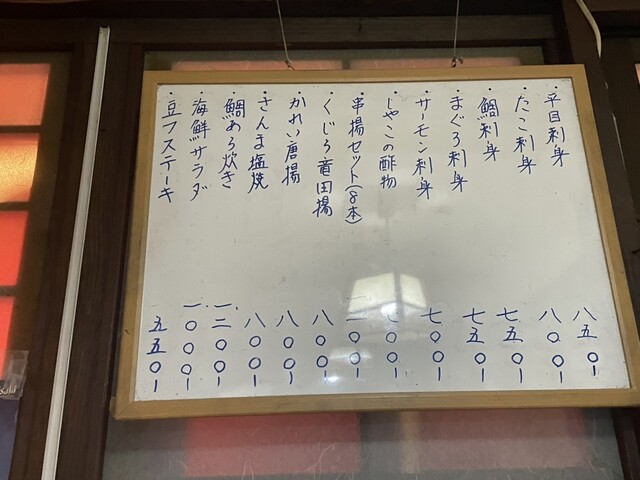 ・平目刺身 八五〇ー
・たこ刺身 八〇〇ー
・鯛刺身 七五〇ー
・まぐろ刺身 七五〇ー
・サーモン刺身 七〇〇ー
・しゃこの酢物 七〇〇ー
・串揚セット(8本)
・くじら竜田揚 八〇〇ー
・かれい唐揚 八〇〇ー
・さんま塩焼 八〇〇ー
・鯛あら炊き 一、二〇〇ー
・海鮮サラダ 一、〇〇〇ー
・豆フステーキ 五五〇ー